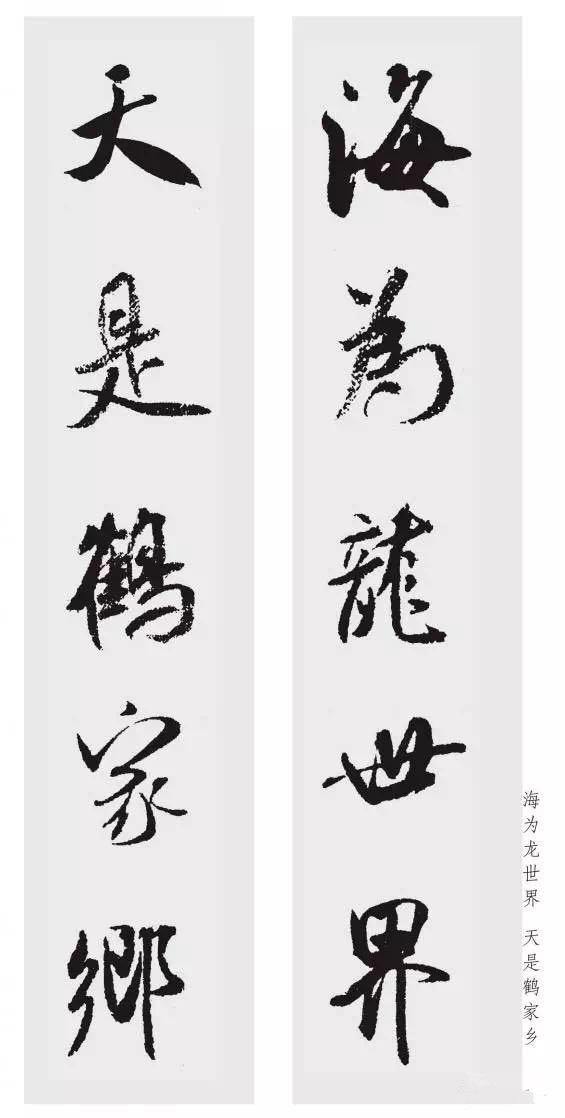 海為龍世界
天是鶴家鄉
海为龙世界 天是鹤家乡